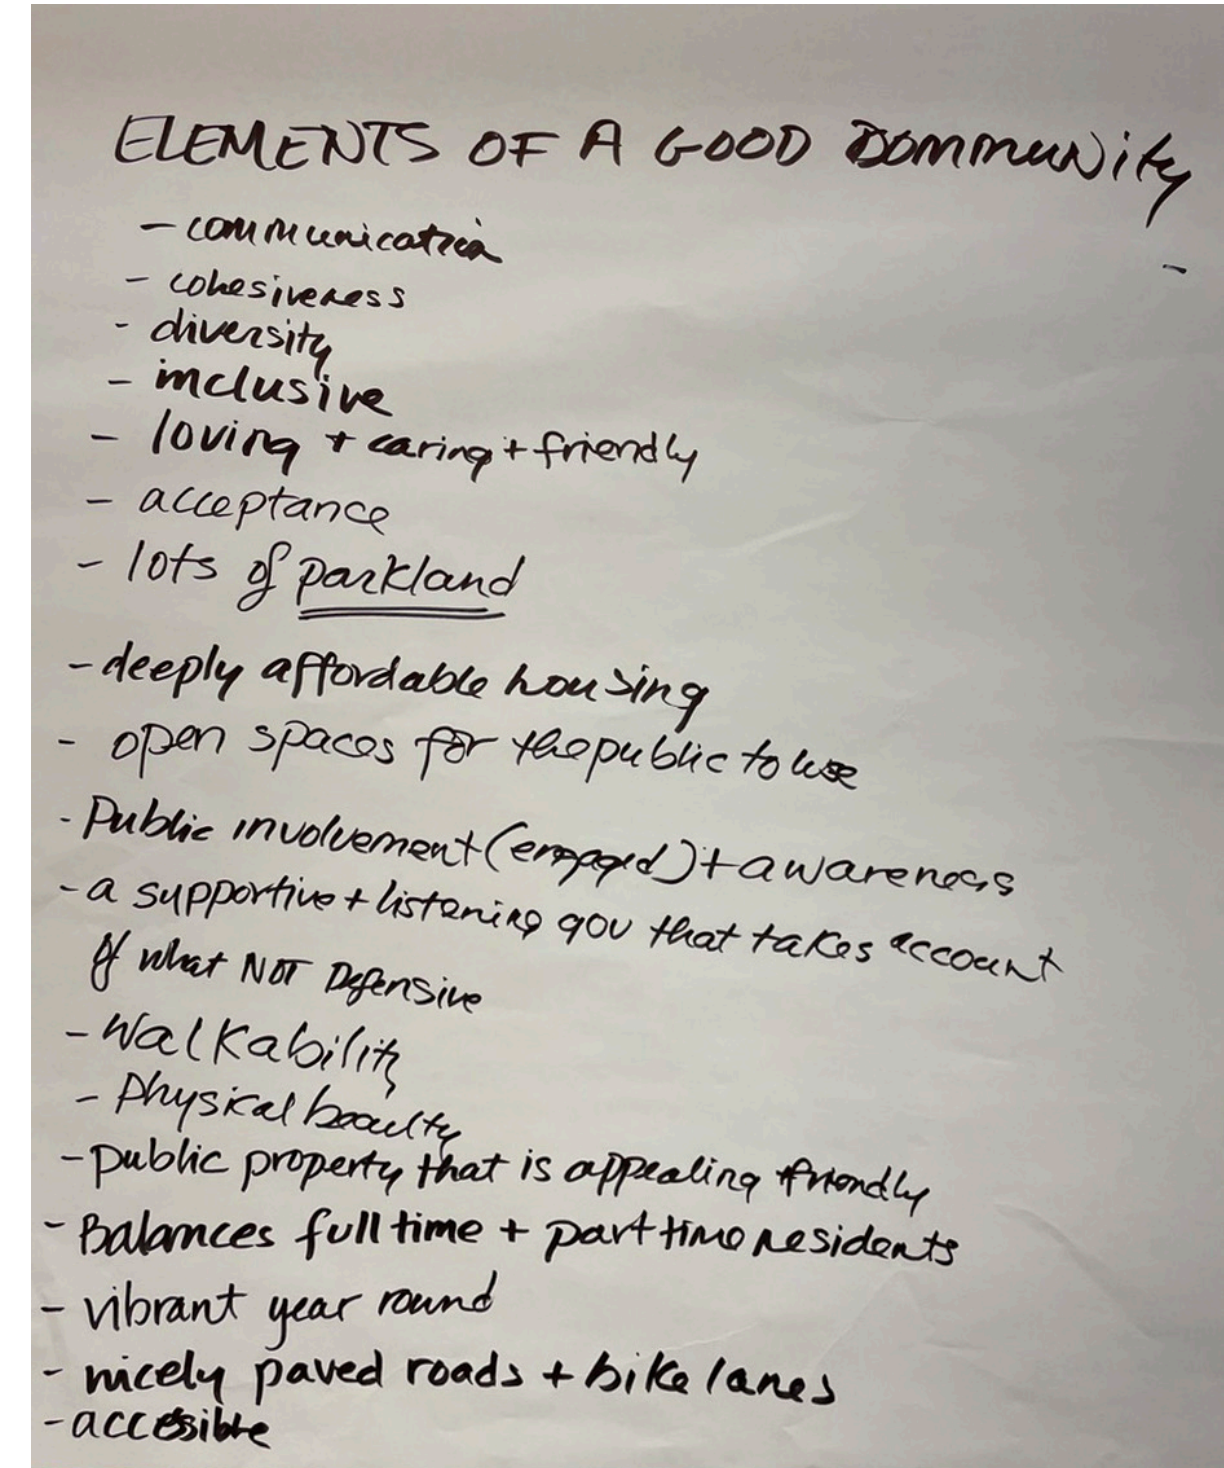 ELEMENTS OF A GOOD DOMMUNity
- communication
- cohesiveness
- diversity
- inclusive
- loving + caring + friendly
- acceptance
- lots of parkland
- deeply affordable housing
- open spaces for the public to use
- Public involvement (engaged) + awareness
- a supportive + listening gov that takes account
of what NOT Defensive
- Walkability
- Physical beauty
- public property that is appealing + friendly
- Balances full time + part time residents
- vibrant year round
- nicely paved roads + bike lanes
- accessible